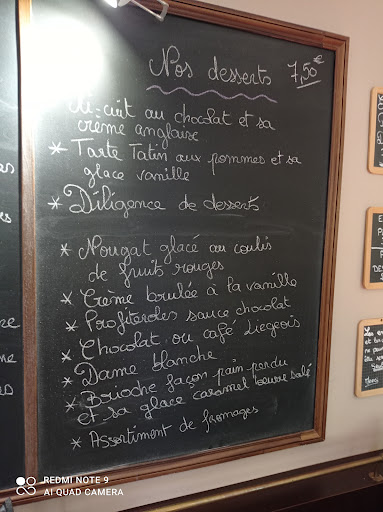 Nos desserts 7,50€
Mi-cuit au chocolat et sa
crème anglaise
* Tarte Tatin aux pommes et sa
glace vanille
* Diligence de desserts
* Nougat glacé au coulis
de fruits rouges
* Crème brulée à la vanille
* Profiteroles sauce chocolat
* Chocolat ou café Liegeois
* Dame blanche
* Brioche façon pain perdu
et sa glace caramel beurre salé
* Assortiment de fromages
REDMI NOTE 9
AI QUAD CAMERA